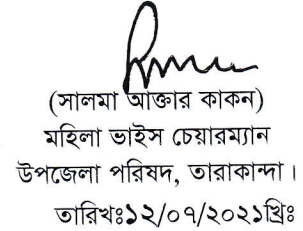 (সালমা আক্তার কাকন)
মহিলা ভাইস চেয়ারম্যান
উপজেলা পরিষদ, তারাকান্দা।
তারিখঃ১২/০৭/২০২১খ্রিঃ